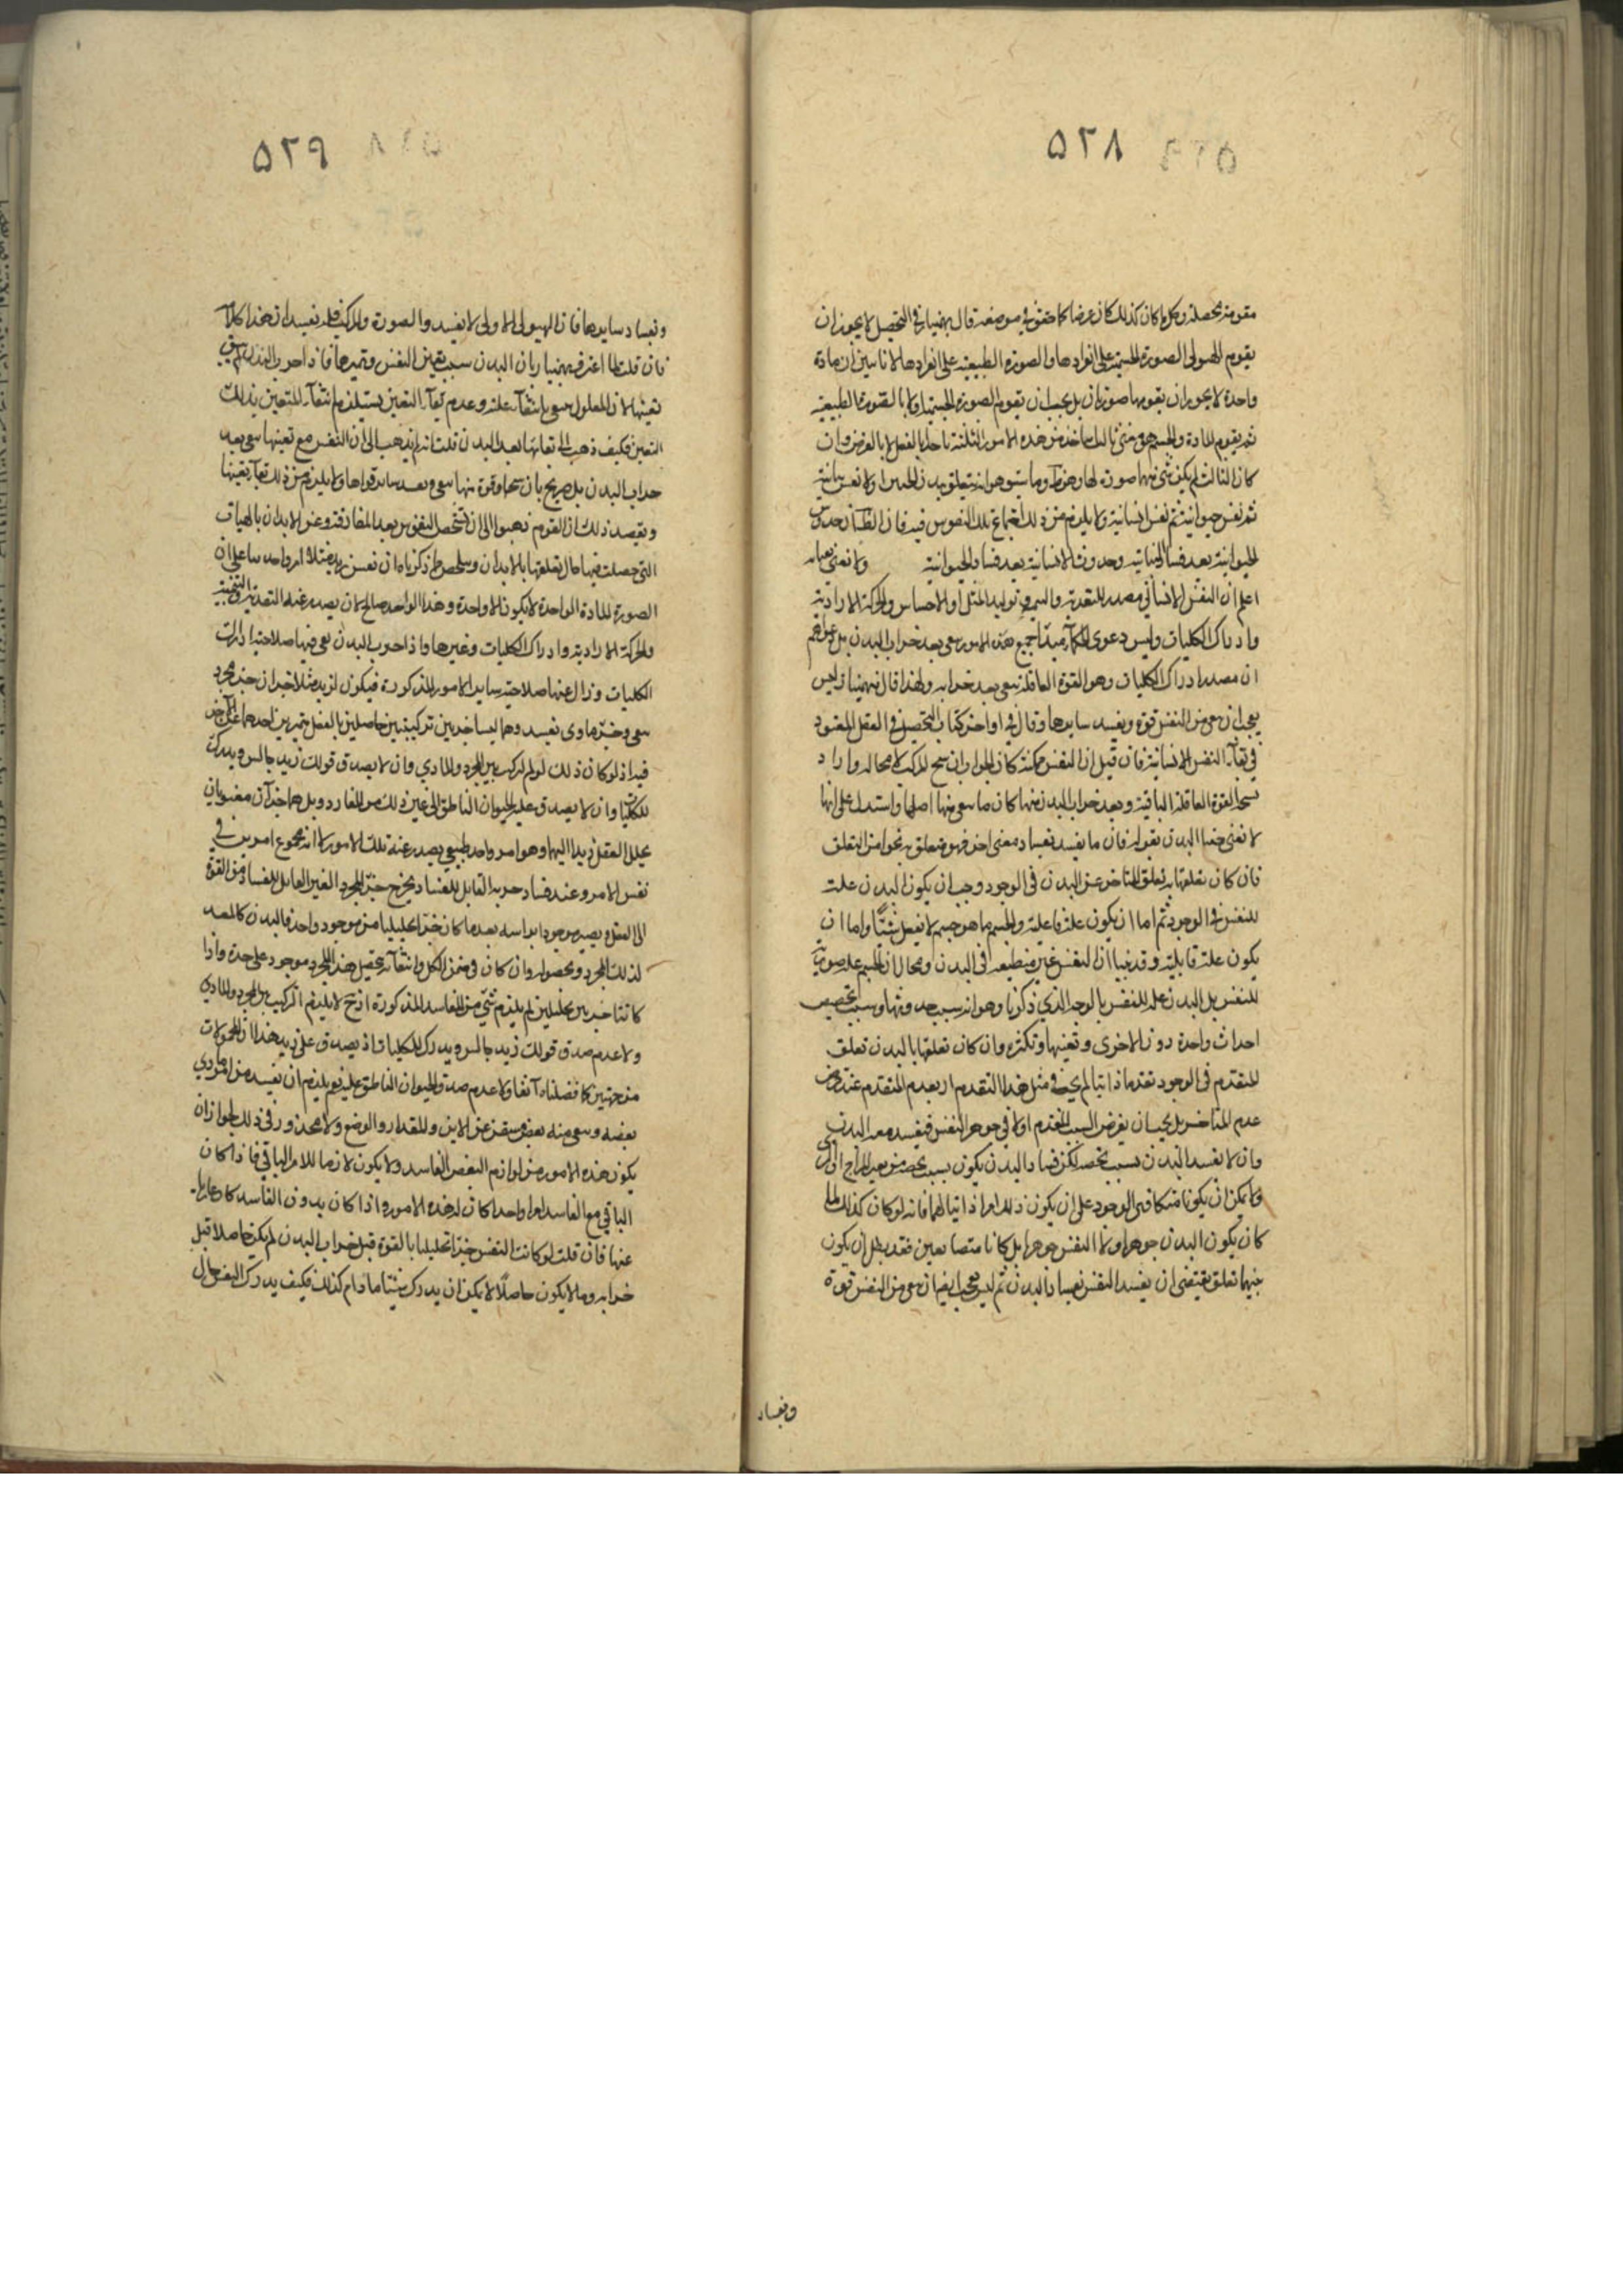 ٥٢٨
مقومة محصلة وكلما كان كذلك كان عرضا كما حقق في موضعه قال بهمنيار في التحصيل لا يجوز ان
يقوم الهيولى الصورة الجسمية على انفرادها والصورة الطبيعية على انفرادها لانا نبين ان مادة
واحدة لا يجوز ان يقومها صورتان بل يجب ان يقوم الصورة الجسمية اولا بالقوة الطبيعية
ثم يقوم المادة والجسم هو شئ ثالث من هذه الامور الثلثة بالفعل لا بالعرض وان
كان الثالث لم يكن شئ منهما صورة لها وهو انه يتعلق بدن الجنين اولا نفس نباتية
ثم نفس حيوانية ثم نفس انسانية ولا يلزم من ذلك اجتماع تلك النفوس فيه فان حدوث
الحيوانية بعد فساد النباتية وحدوث الانسانية بعد فساد الحيوانية ولا نعنى
اعلم ان النفس الانسانى مصدر للتغذية والنمو وتوليد المثل اولا الاحساس والحركة الارادية
وادراك الكليات وليس دعوى الحكماء جميع هذه الامور يبقى بعد خراب البدن بل
ان مصدر ادراك الكليات وهو القوة العاقلة يبقى بعد خرابه ولهذا قال بهمنيار ليس
يجب ان يبقى من النفس قوة ويفسد سايرها وقال في اواخر كتاب التحصيل في الفصل المعقود
في بقاء النفس الانسانية فان قيل ان النفس ممكنة كان الجواب ان لا محاله واراد
القوة العاقلة الباقية وبعد خراب البدن منها كان ما يبقى منها اصلها واستدل على انها
لا تفنى بفناء البدن بقوله فان ما يفسد بفساد معنى اخر فهو متعلق به نحوا من التعلق
فان كان تعلقها به تعلق المتاخر عن البدن في الوجود وجب ان يكون البدن علة
للنفس في الوجود ثم اما ان يكون علة فاعلية والجسم بما هو جسم لا يفعل شيئا واما ان
يكون علة قابلية وقد بينا ان النفس غير منطبعة في البدن ومحال ان الجسم علة صورية
للنفس بل البدن علة للنفس بالوجه الذي ذكرنا وهو انه سبب حدوثها وسبب تخصيص
احداث واحدة دون الاخرى وتعينها وتكثره وان كان تعلقها بالبدن تعلق
المتقدم في الوجود تقدما ذاتيا لم يجز في مثل هذا التقدم ان يعدم المتقدم عند فرض
عدم المتاخر بل يجب ان يفرض السبب المتقدم اولا في جوهر النفس فيفسد معه البدن
وان لا يفسد البدن بسبب يخصه لكن فساد البدن يكون بسبب يخصه من تغير المزاج او
ولا يمكن ان يكونا متكافئى الوجود على ان يكون ذلك امرا ذاتيا لهما فانه لو كان كذلك لما
كان يكون البدن جوهرا ولا النفس جوهرا بل كانا متضايفين فقد بطل ان يكون
بينهما تعلق يقتضى ان يفسد النفس بفساد البدن ثم ليس يجب ايضا ان يبقى من النفس قوة
وبفساد
٥٢٩
وبفساد سايرها فان الهيولى الاولى لا يفسد والصورة والمركب قد يفسدان هذا كلامه
فان قلت لما اعترف بهمنيار بان البدن سبب تعين النفس وتميزها فاذا خرب البدن لم يبق
تعينها لان المعلول ينتفى بانتفاء علته وعدم بقاء التعين يستلزم انتفاء المتعين بذلك
التعين فكيف ذهب الى بقائها بعد البدن قلت انه لم يذهب الى ان النفس مع تعينها يبقى بعد
خراب البدن بل صرح بان قوة منها يبقى ويفسد ساير قواها ولا يلزم من ذلك بقاء تعينها
ويعضد ذلك ان القوم ذهبوا الى ان تشخص النفوس بعد المفارقة عن الابدان بالهيات
التى حصلت فيها حال تعلقها بالابدان وملخص ما ذكرناه ان نفس زيد مثلا امر واحد بناء على ان
الصورة للمادة الواحدة لا يكون الا واحدة وهذا الواحد صالح لان يصدر عنه التغذية والتنمية
والحركة الارادية وادراك الكليات وغيرها واذا خرب البدن بقى فيها صلاحية ادراك
الكليات وزال عنها صلاحية ساير الامور المذكورة فيكون لزيد مثلا جزءان جزء مجرد
يبقى وجزء مادى يفسد وهما ليسا جزءين تركيبيين حاصلين بالفعل متميزين احدهما عن الاخر
فيه اذ لو كان ذلك لزم التركب بين المجرد والمادي وان لا يصدق قولك زيد جالس ويدرك
للكليات وان لا يصدق عليه الحيوان الناطق الى غير ذلك من المفاسد بل هما جزءان معنويان
يحلل العقل زيدا اليهما وهو امر واحد طبيعي يصدر عنه تلك الامور لا انه مجموع امرين في
نفس الامر وعند فساد جزئه القابل للفساد يخرج جزئه المجرد الغير القابل للفساد من القوة
الى الفعل ويصير موجودا براسه بعد ما كان جزءا تحليليا من موجود واحد فالبدن كالمعد
لذلك المجرد وبحصوله وان كان في ضمن الكل وانتفائه يحصل هذا المجرد موجود على حدة واذا
كانتا جزءين تحليليين لم يلزم شئ من المفاسد المذكورة اذ ح لا يلزم التركيب من المجرد والمادي
ولا عدم صدق قولك زيد جالس ويدرك للكليات اذ يصدق على زيد هذان المحمولات
من جهتين كما فصلناه آنفا ولا عدم صدق الحيوان الناطق عليه نعم يلزم ان يفسد من امر مادي
بعضه ويبقى منه بعض مستغن عن الاين والمقدار والوضع ولا محذور في ذلك لجواز ان
يكون هذه الامور من لوازم البعض الفاسد ولا يكون لازما للامر الباقي فاذا كان
الباقي مع الفاسد امرا واحدا كان له هذه الامور واذا كان بدون الفاسد كان عاريا
عنها فان قلت لو كانت النفس جزءا تحليليا بالقوة قبل خراب البدن لم يكن حاصلا قبل
خرابه وما لا يكون حاصلا لا يمكن ان يدرك شيئا ما دام كذلك فكيف يدرك النفس حال